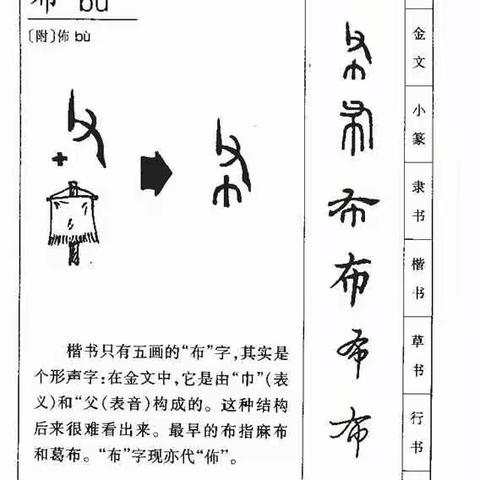 布 bù
〔附〕佈 bù
楷书只有五画的“布”字,其实是
个形声字:在金文中,它是由“巾”(表
义)和“父(表音)构成的。这种结构
后来很难看出来。最早的布指麻布
和葛布。“布”字现亦代“佈”。
布
布
布
布
布
布
金文
小篆
隶书
楷书
草书
行书